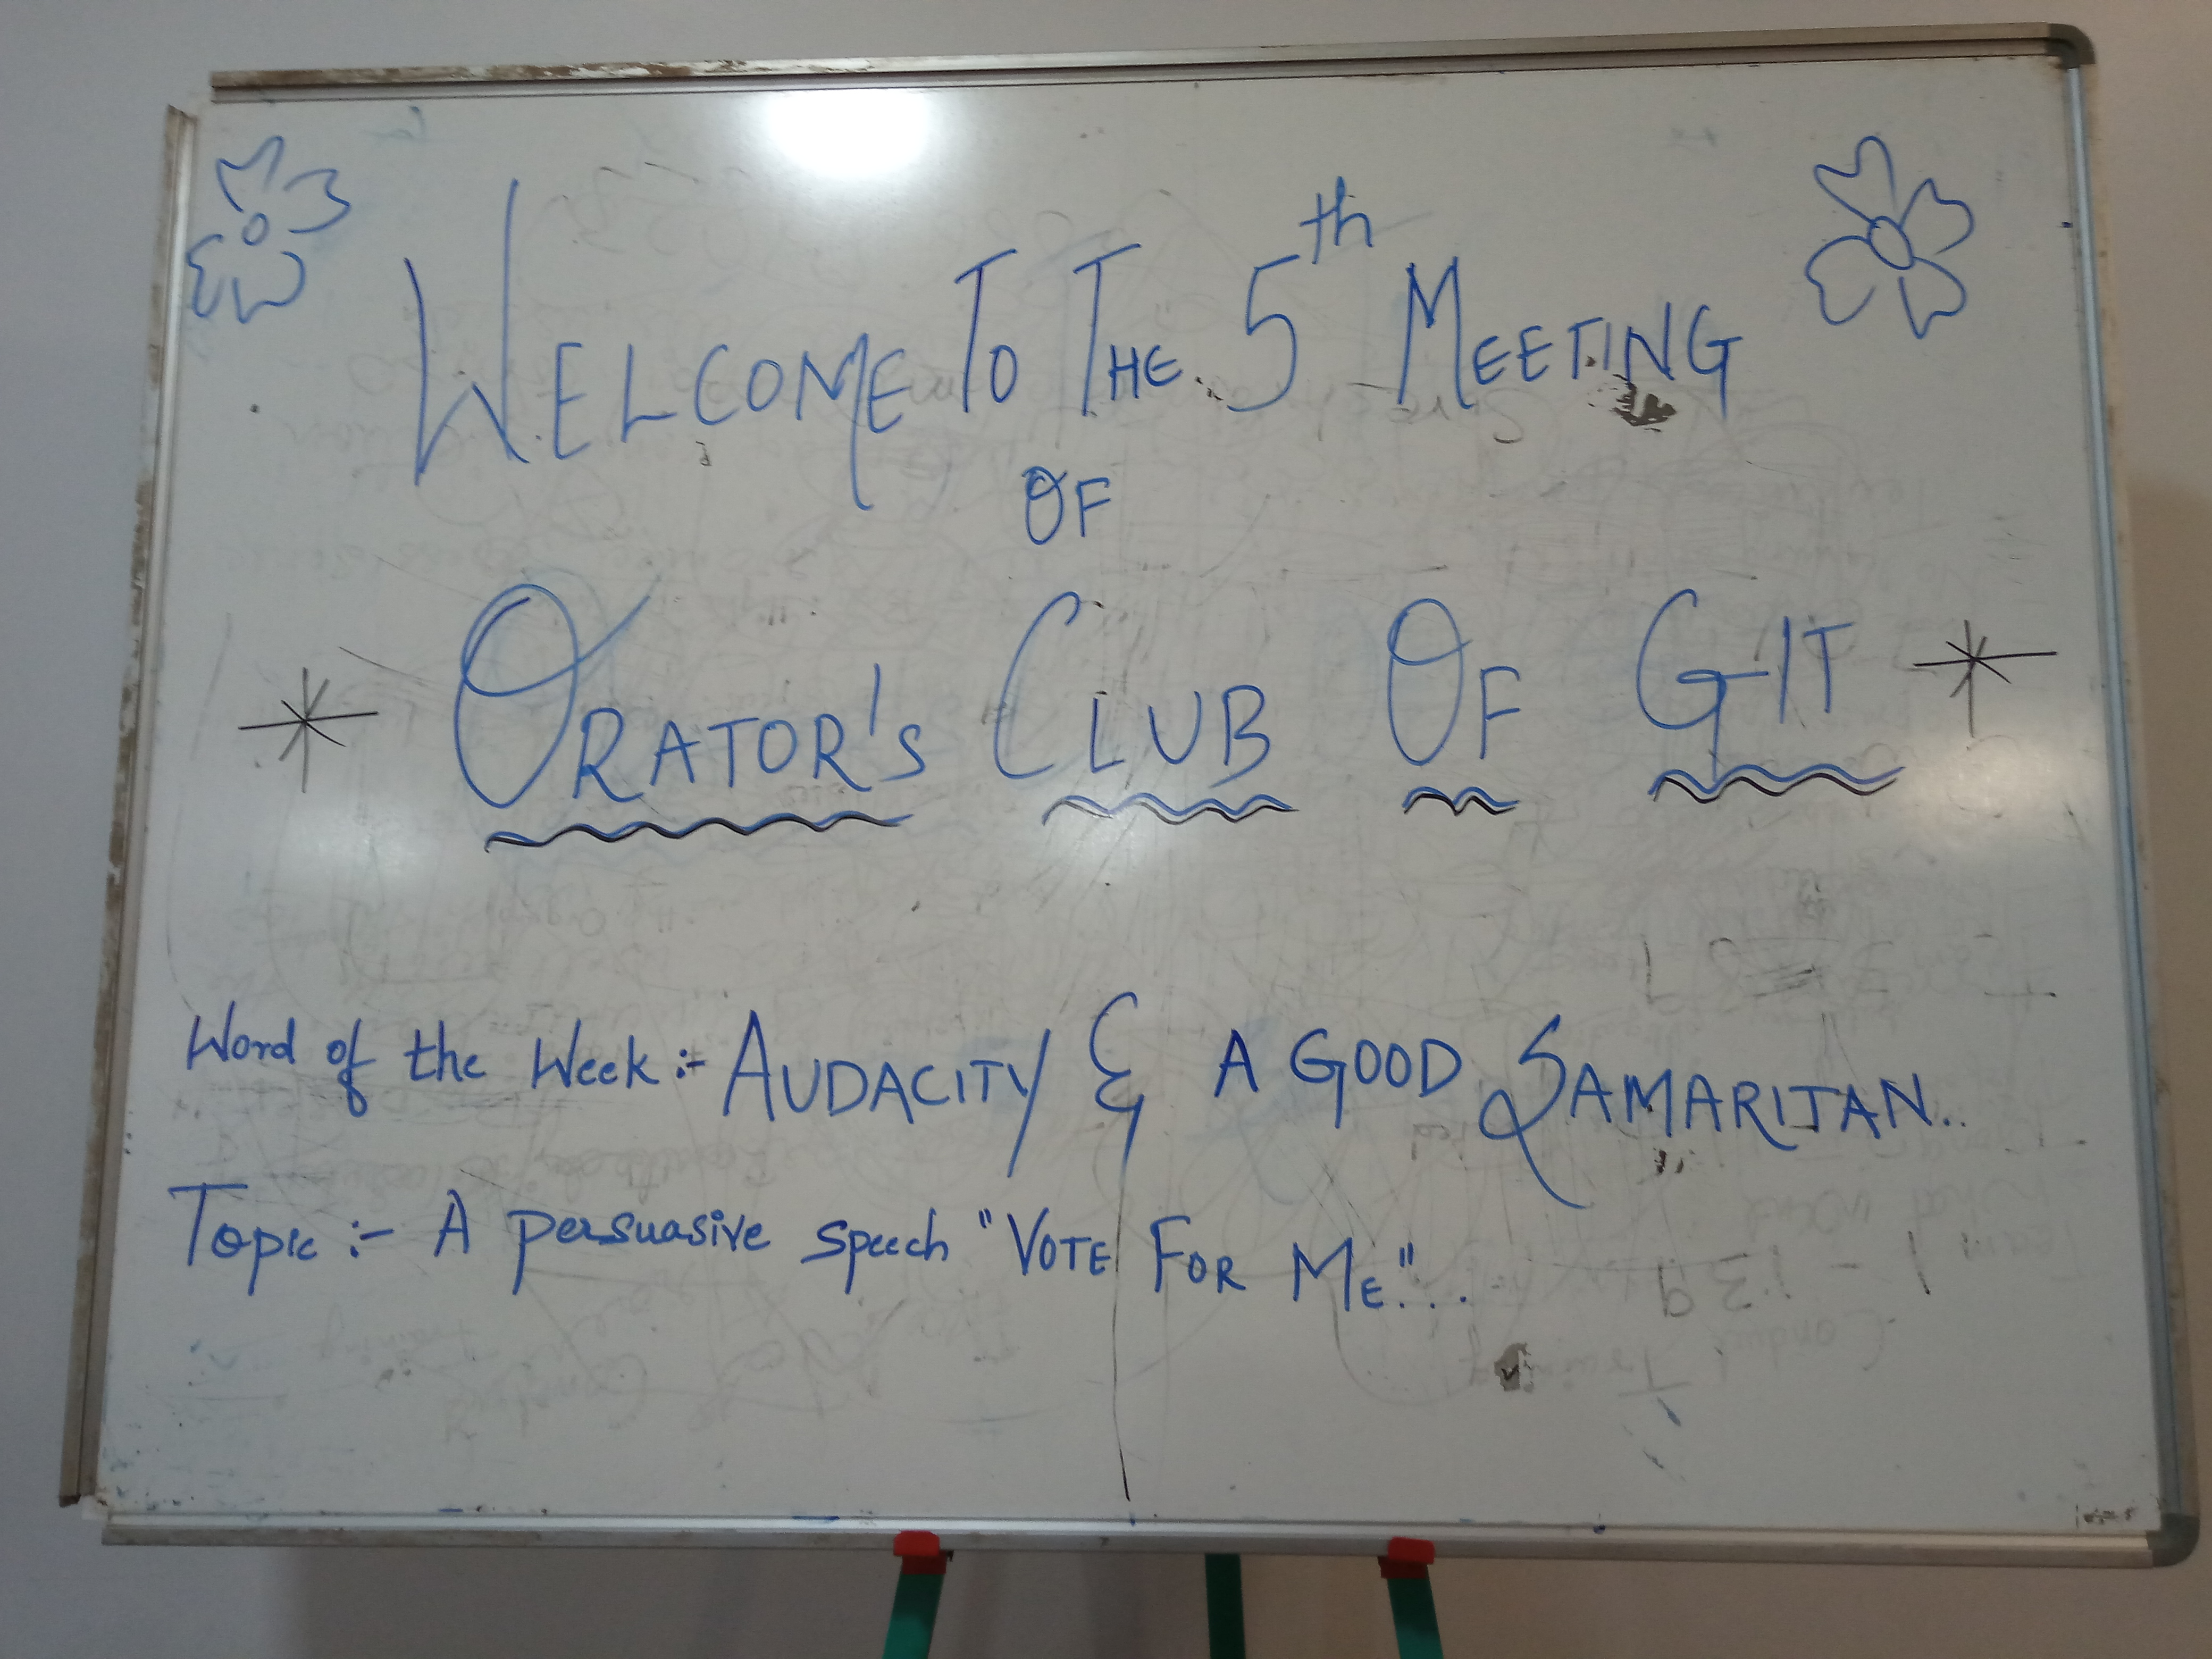 WELCOME TO THE 5th MEETING
OF
ORATOR'S CLUB OF GIT
Word of the Week :- AUDACITY & A GOOD SAMARITAN..
Topic :- A persuasive speech "VOTE FOR ME"...